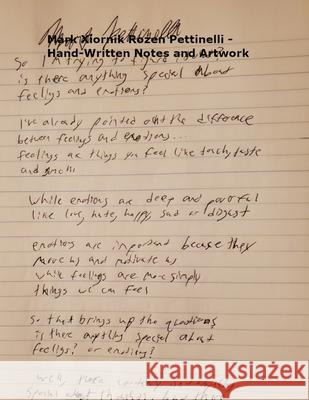 Mark Xiornik Rozen Pettinelli -
Hand-Written Notes and Artwork
So I'm trying to figure
is there anything special about
feelings and emotions?
I've already pointed out the difference
between feelings and emotions...
feelings are things you feel like touch, taste
and smell
While emotions are deep and powerful
like love, hate, happy, sad or digest
emotions are important because they
move us and motivate us
while feelings are more simply
things we can feel
So that brings up the questions
is there anything special about
feelings? or emotions?
well, there
special about